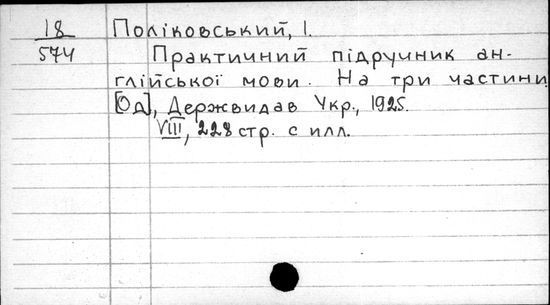 18 Поліковський, І.
574 Практичний підручник ан-
глійської мови. На три частини
[Од], Держвидав Укр., 1925.
VIII, 228 стр. с илл.